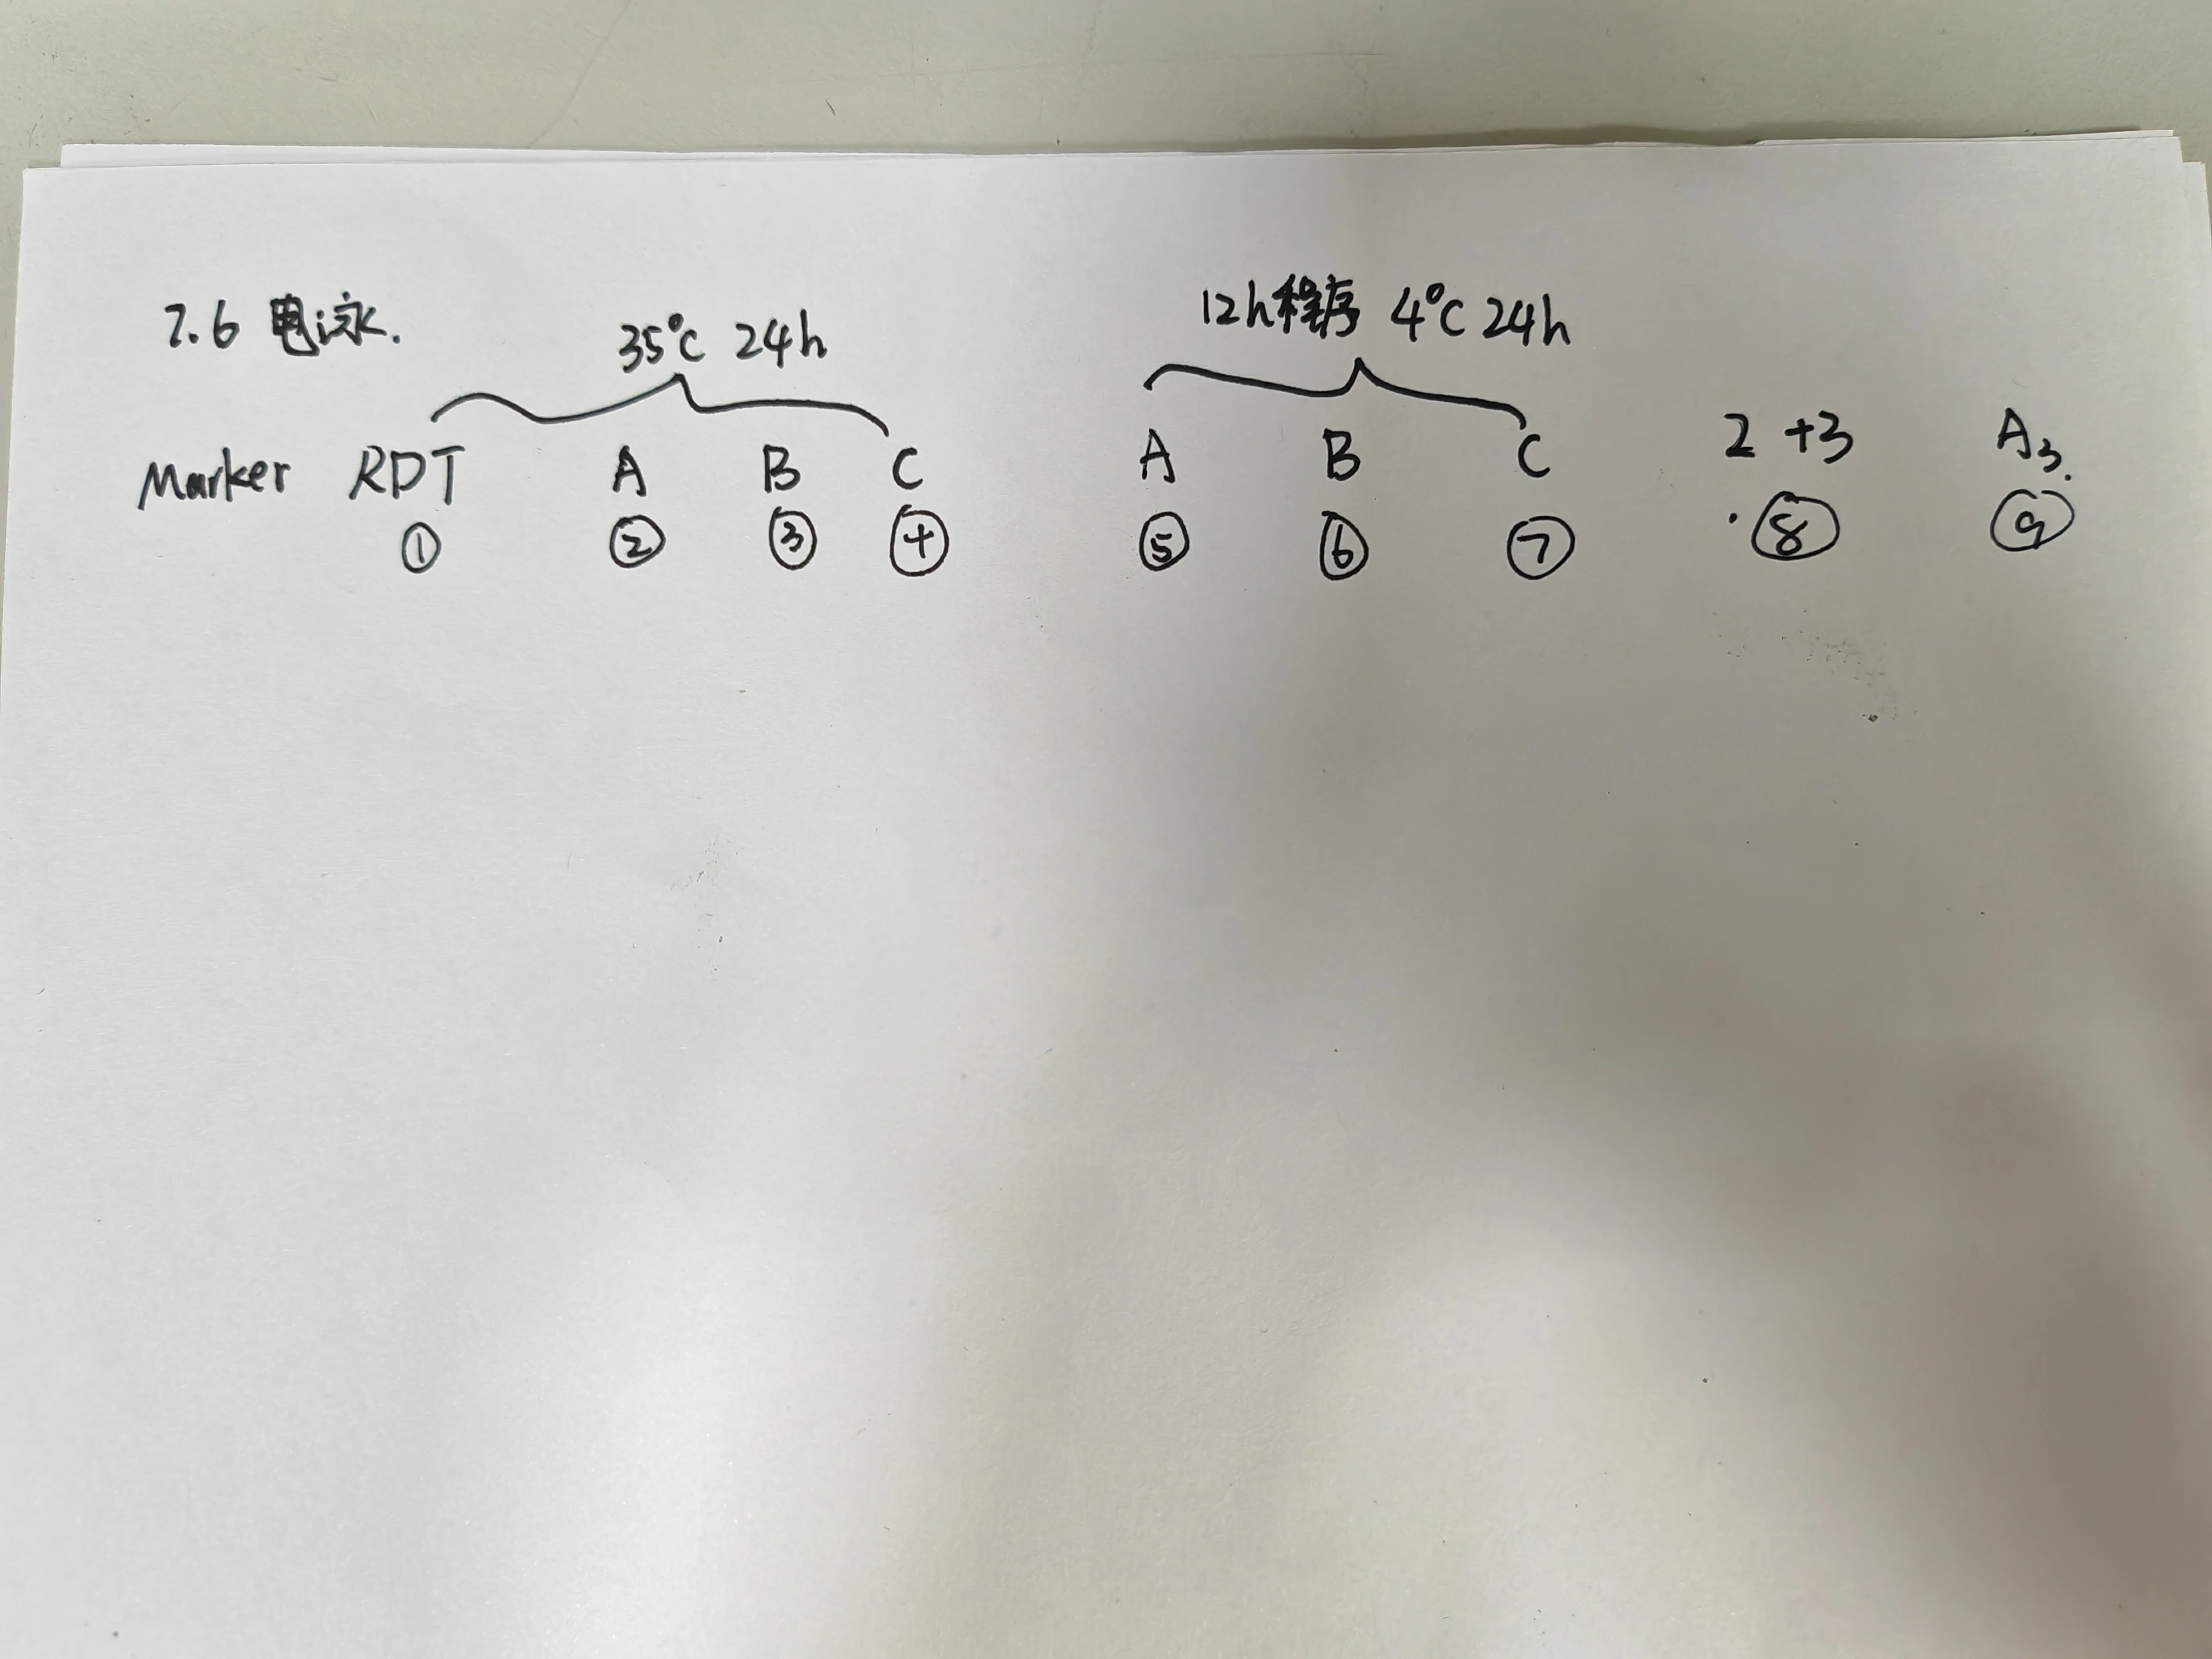 7.6 电泳.
35°C 24h
12h程序 4°C 24h
Marker RDT A B C A B C 2+3 A3.
① ② ③ ④ ⑤ ⑥ ⑦ ⑧ ⑨